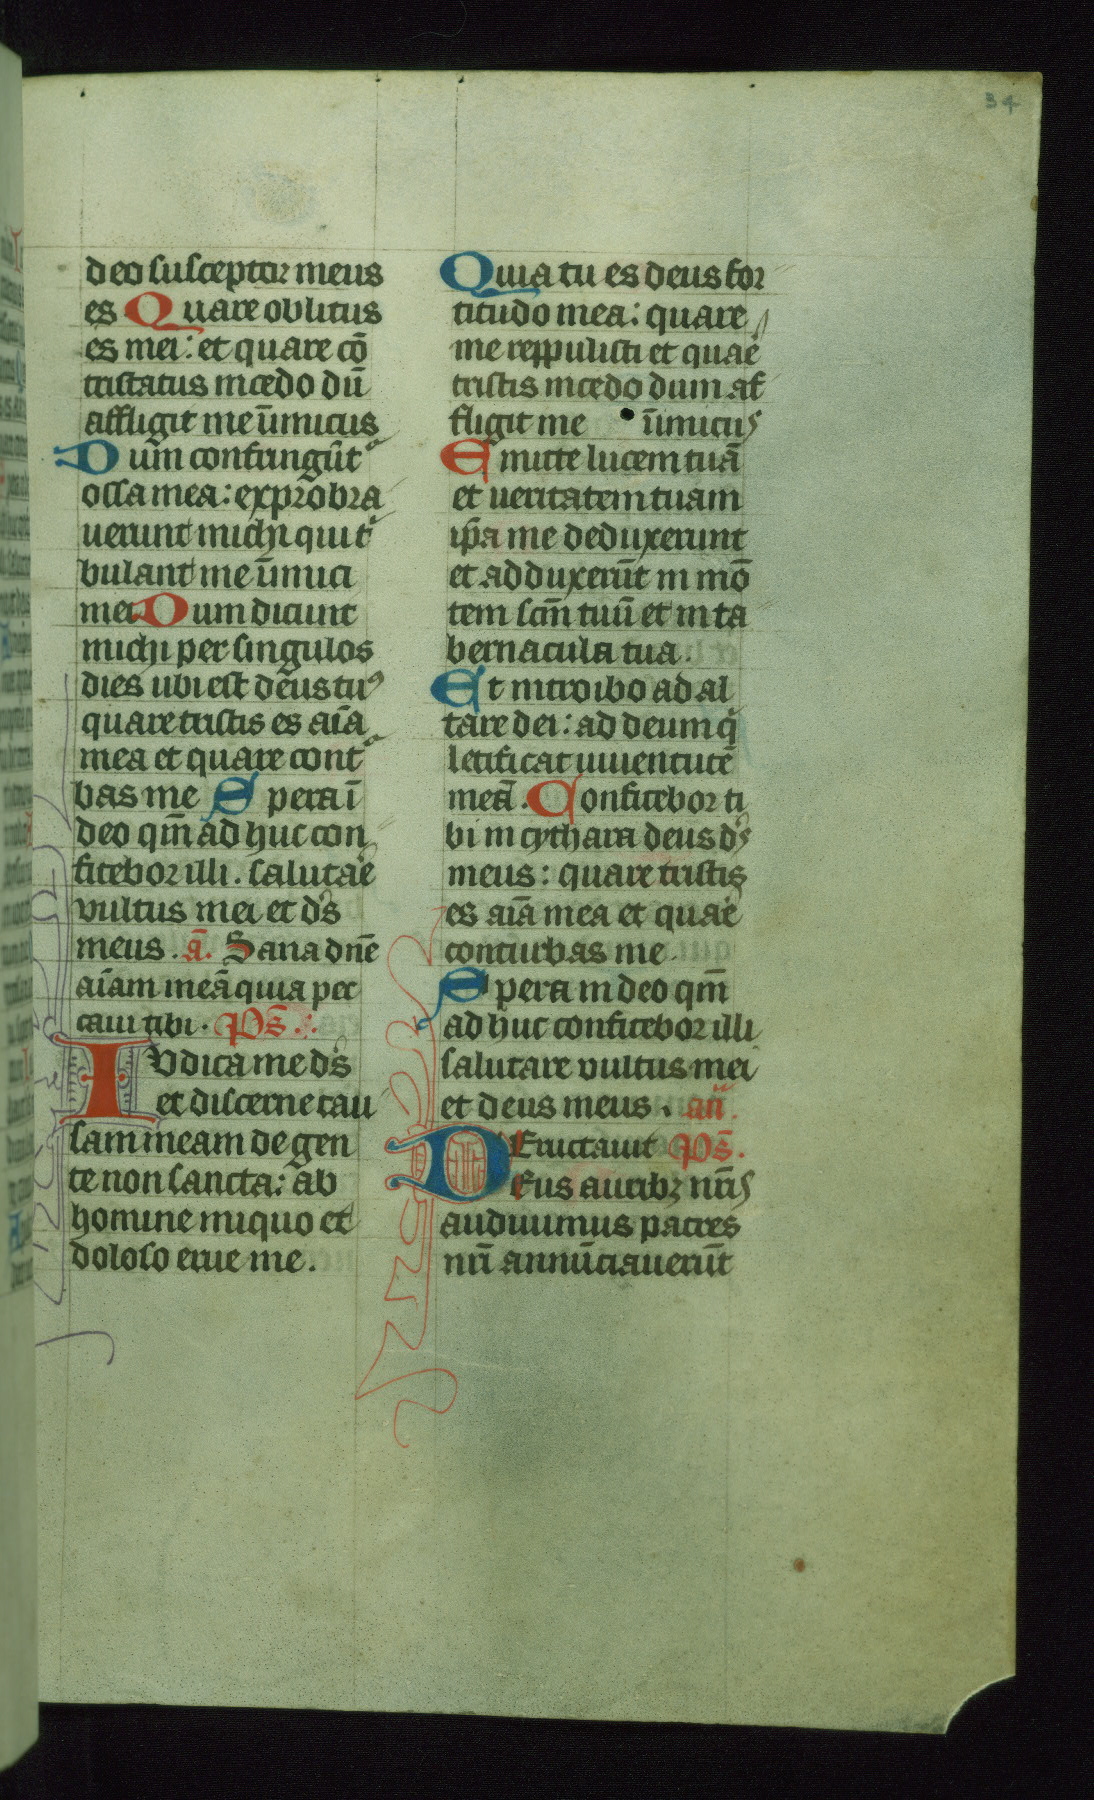 34
deo susceptor meus
es Quare oblitus
es mei: et quare cō
tristatus incedo dū
affligit me īnimicus
Dum confringūt
ossa mea: exprobra
uerunt michi qui tͣ
bulant me īnimici
mei Dum dicunt
michi per singulos
dies ubi est deus tuꝰ
quare tristis es aīa
mea et quare contͣ
bas me Spera ī
deo qm̄ ad huc con
fitebor illi. salutare
vultus mei et ds̄
meus. ā. Sana dnē
aīam meā quia pec
caui tibi. Ps̄.
IVdica me ds̄
et discerne cau
sam meam de gen
te non sancta: ab
homine iniquo et
doloso erue me.
Quia tu es deus for
titudo mea: quare
me reppulisti et quare
tristis incedo dum af
fligit me īnimicus
Emitte lucem tuā
et ueritatem tuam
ip̄a me deduxerunt
et adduxerūt in mō
tem scm̄ tuū et in ta
bernacula tua.
Et introibo ad al
tare dei: ad deum q̄
letificat iuuentutē
meā. Confitebor ti
bi in cythara deus ds̄
meus: quare tristis
es aīa mea et quare
conturbas me.
Spera in deo qm̄
ad huc confitebor illi
salutare vultus mei
et deus meus. an̄.
Eructauit Ps̄.
DEus auribꝫ nr̄is
audiuimus patres
nr̄i annūciauerūt